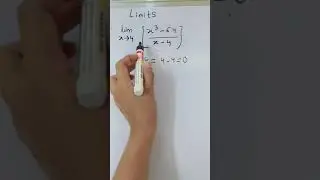 Limits
lim x→4 [ x³ - 64 / x - 4 ]
= 4 - 4 = 0